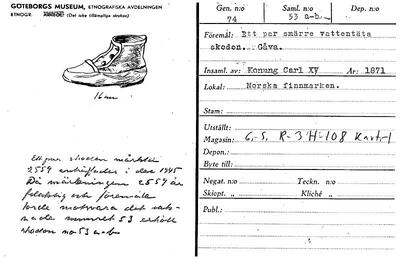 GÖTEBORGS MUSEUM, ETNOGRAFISKA AVDELNINGEN
ETNOGR. (Det icke tillämpliga strykes)
16 cm
Ett par skodon märkta
2559 anträffades i dec 1945
Då märkningen 2559 är
felaktig och föremålen
torde motsvara det sak-
nade numret 53 erhöll
skodon no 53 a-b
Gen. n:o
74
Saml. n:o
53 a-b.
Dep. n:o
Föremål: Ett par smärre vattentäta
skodon. Gåva.
Insaml. av: Konung Carl XV År: 1871
Lokal: Norska finnmarken.
Stam:
Utställt:
Magasin: G-S, R-3 H-108 Kart-1
Depon.:
Byte till:
Negat. n:o Teckn. n:o
Skiopt. „ Kliché „
Publ.: